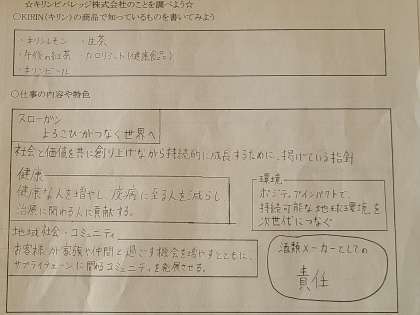 ☆キリンビバレッジ株式会社のことを調べよう☆
○KIRIN(キリン)の商品で知っているものを書いてみよう
・キリンレモン ・生茶
・午後の紅茶 ・カロリミット(健康食品)
・キリンビール
○仕事の内容や特色
スローガン
よろこびがつなぐ世界へ
社会と価値を共に創り上げながら持続的に成長するために、掲げている指針
健康
健康な人を増やし、疾病に至る人を減らし
治療に関わる人に貢献する。
環境
ポジティブインパクトで、
持続可能な地球環境を
次世代につなぐ
地域社会・コミュニティ
お客様が家族や仲間と過ごす機会を増やすとともに、
サプライチェーンに関わるコミュニティを発展させる。
酒類メーカーとしての
責任